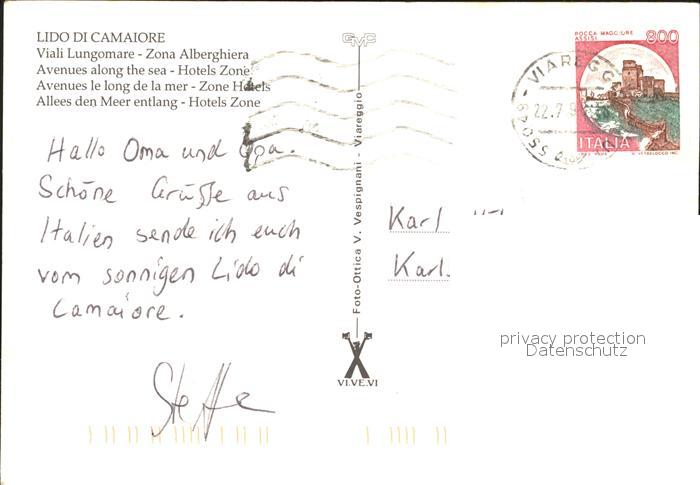 LIDO DI CAMAIORE
Viali Lungomare - Zona Alberghiera
Avenues along the sea - Hotels Zone
Avenues le long de la mer - Zone Hotels
Allees den Meer entlang - Hotels Zone
Hallo Oma und Opa.
Schöne Grüße aus
Italien sende ich euch
vom sonnigen Lido di
Camaiore.
Steffe
GMC
Foto-Ottica V. Vespignani - Viareggio
VI.VE.VI
ROCCA MAGGIORE
ASSISI
800
ITALIA
VIAREGGIO
22.7.9
55049
Karl
Karl.
privacy protection
Datenschutz